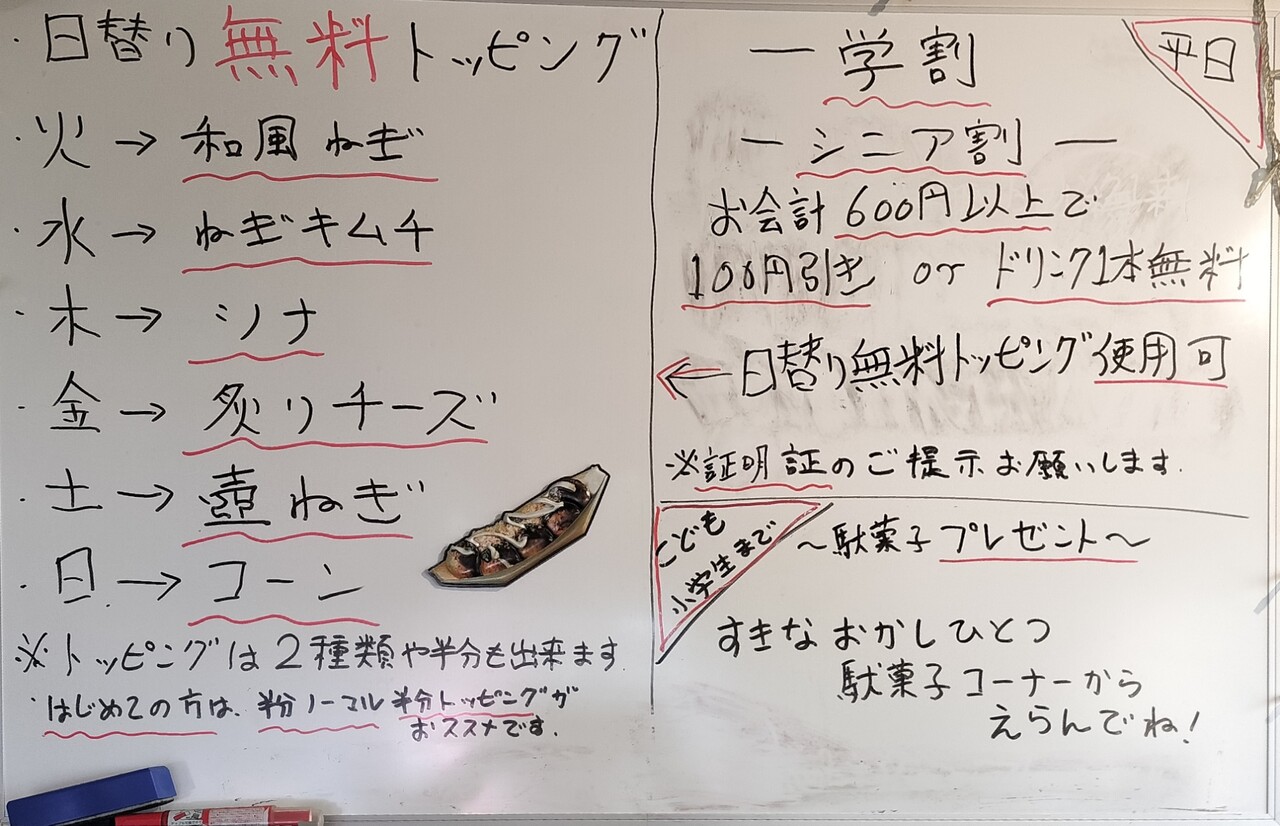 ・日替り無料トッピング
・火→和風ねぎ
・水→ねぎキムチ
・木→ツナ
・金→炙りチーズ
・土→壺ねぎ
・日→コーン
※トッピングは2種類や半分も出来ます。
・はじめての方は、半分ノーマル半分トッピングが
おススメです。
平日
ー学割
ーシニア割ー
お会計600円以上で
100円引き or ドリンク1本無料
←日替り無料トッピング使用可
※証明証のご提示お願いします。
こども
小学生まで
～駄菓子プレゼント～
すきなおかしひとつ
駄菓子コーナーから
えらんでね!